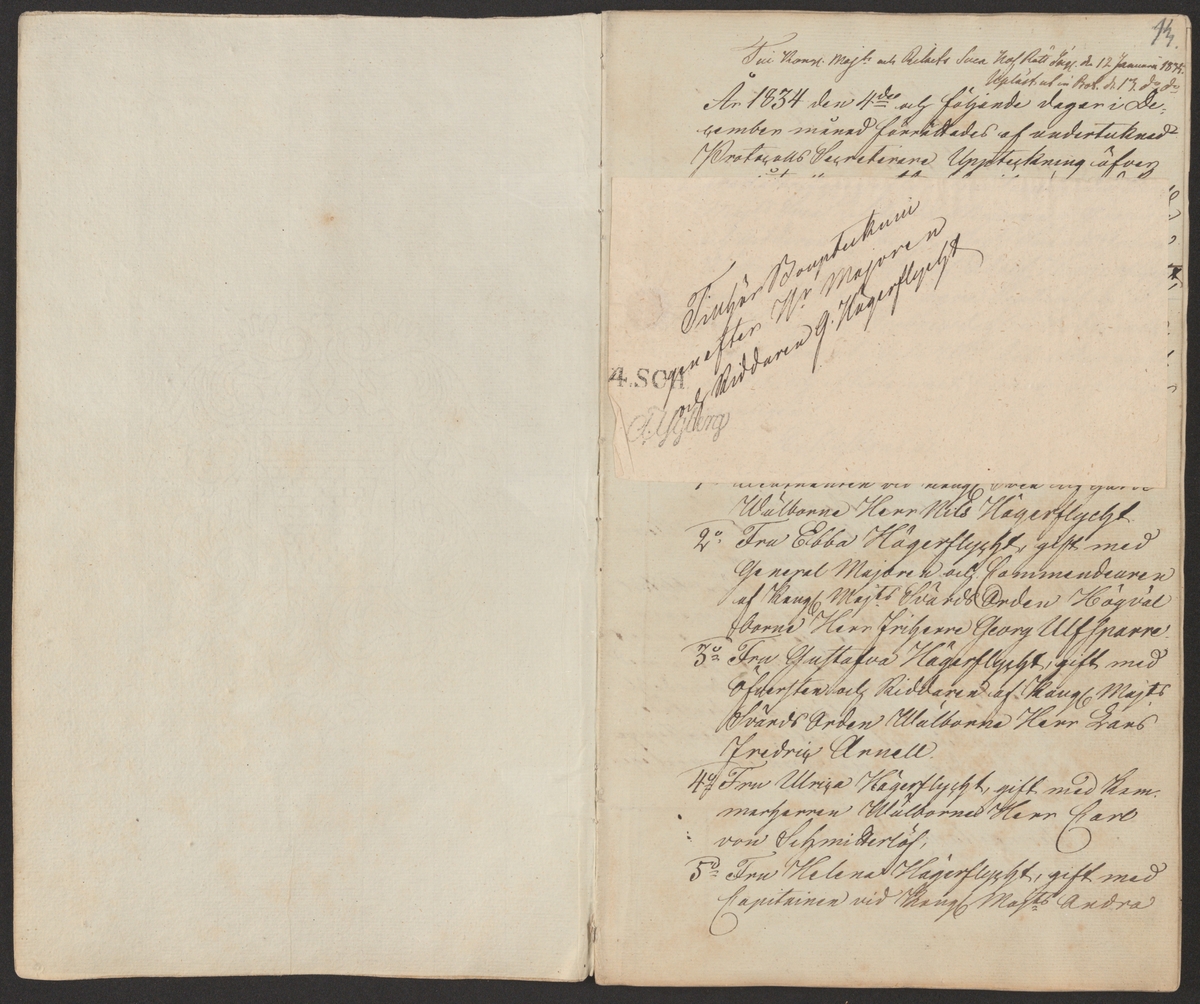 13.
Till Kongl. Majts och Rikets Svea Hof Rätt Ing. d. 12 Januarii 1835.
Upläst d. 13. do do
År 1834 den 4de och följande dagar i De-
cember månad förrättades af undertecknad
Protocolls Secreterare Uppteckning öfver
Tillhör Bouptekni
gen efter Hr Majoren
och Riddaren G. Hägerflycht
4.SCH
vid Kongl. Svea
Wälborne Herr Nils Hägerflycht
2o Fru Ebba Hägerflycht, gift med
General Majoren och Commendeuren
af Kongl. Majts Svärds Orden Högväl
borne Herr Friherre Georg Ulf Sparre.
3o Fru Gustafva Hägerflycht, gift med
Öfversten och Riddaren af Kongl. Majts
Svärds Orden Wälborne Herr Lars
Fredric Arnell.
4o Fru Ulrica Hägerflycht, gift med Kam-
marherren Wälborne Herr Carl
von Schmiterlöf;
5o Fru Helena Hägerflycht, gift med
Capitainen vid Kongl. Majts Andra